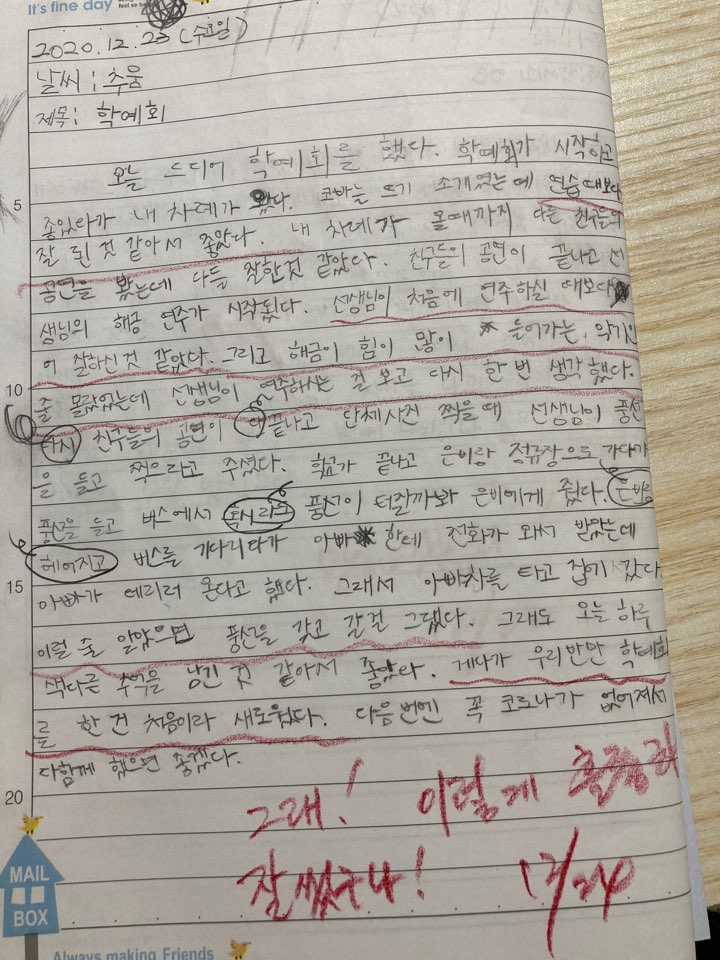 It's fine day
2020.12.23 (수요일)
날씨 : 추움
제목: 학예회
오늘 드디어 학예회를 했다. 학예회가 시작하고
5
중있다가 내 차례가 왔다. 소개였는데 연습때보다
잘 된 것 같아서 좋았다. 내 차례가 올때까지 다른 친구들의
공연을 봤는데 다들 잘한것 같았다. 친구들의 공연이 끝나고 선
생님의 해금 연주가 시작됬다. 선생님이 처음에 연주하실 때보다
어 잘하신 것 같았다. 그리고 해금이 힘이 많이 들어가는 악기인
10
줄 몰랐었는데 선생님이 연주하시는 걸 보고 다시 한 번 생각했다.
다시 친구들의 공연이 끝나고 단체사진 찍을때 선생님이 풍선
을 들고 찍으라고 주셨다. 학교가 끝나고 은비랑 정류장으로 가다가
풍선을 들고 버스에서 혹시라도 풍선이 터질까봐 은비에게 줬다. 은비랑
헤어지고 버스를 기다리다가 아빠한테 전화가 와서 받았는데
15
아빠가 데리러 온다고 했다. 그래서 아빠차를 타고 집에 갔다.
이럴 줄 알았으면 풍선을 갖고 갈걸 그랬다. 그래도 오늘 하루
색다른 추억을 남긴 것 같아서 좋았다. 게다가 우리반만 학예회
를 한 건 처음이라 새로웠다. 다음번엔 꼭 코로나가 없어져서
다함께 했으면 좋겠다.
20
그래! 이렇게 훌륭히
잘 썼구나! 12/24
MAIL
BOX
Always making Friends